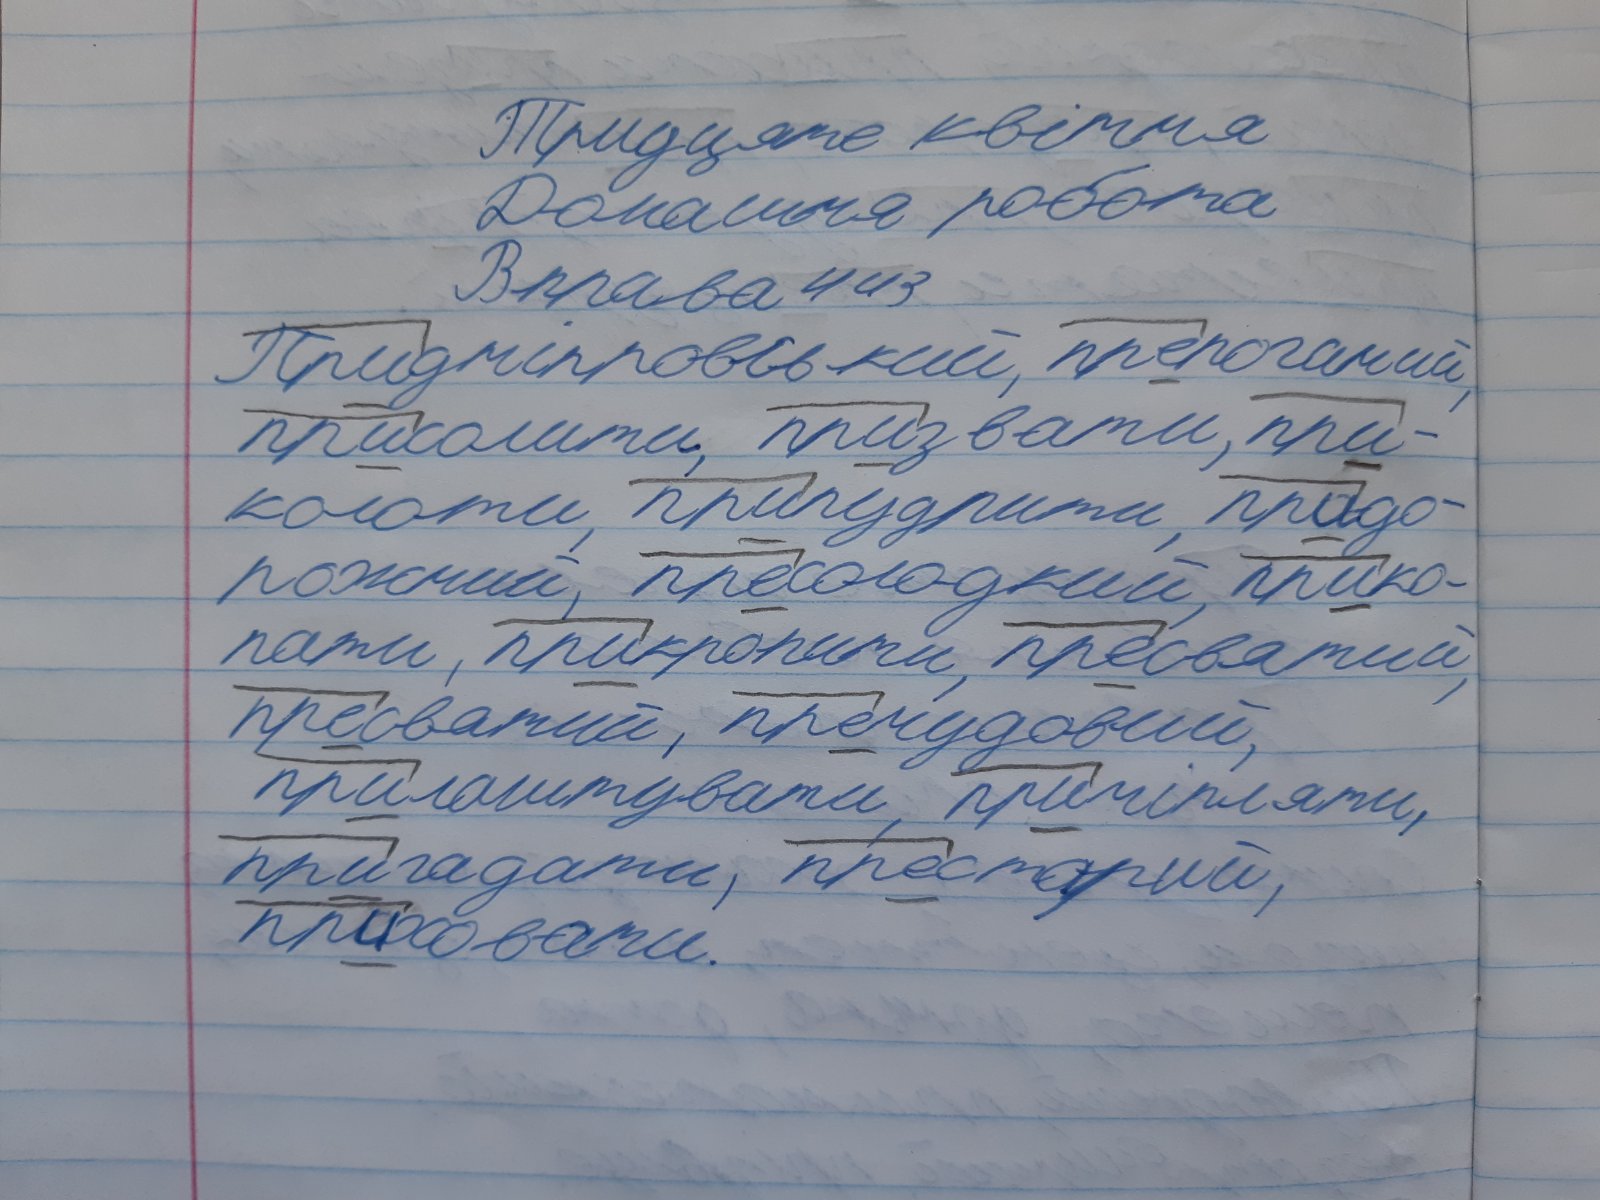 Тридцяте квітня
Домашня робота
Вправа 413
Придніпровський, препоганий,
присолити, призвати, при-
колоти, припудрити, придо-
рожчий, пресолодкий, прико-
пати, прикропити, пресвятий,
пресватий, пречудовий,
прилаштувати, причіпляти,
пригадати, престарий,
приховати.